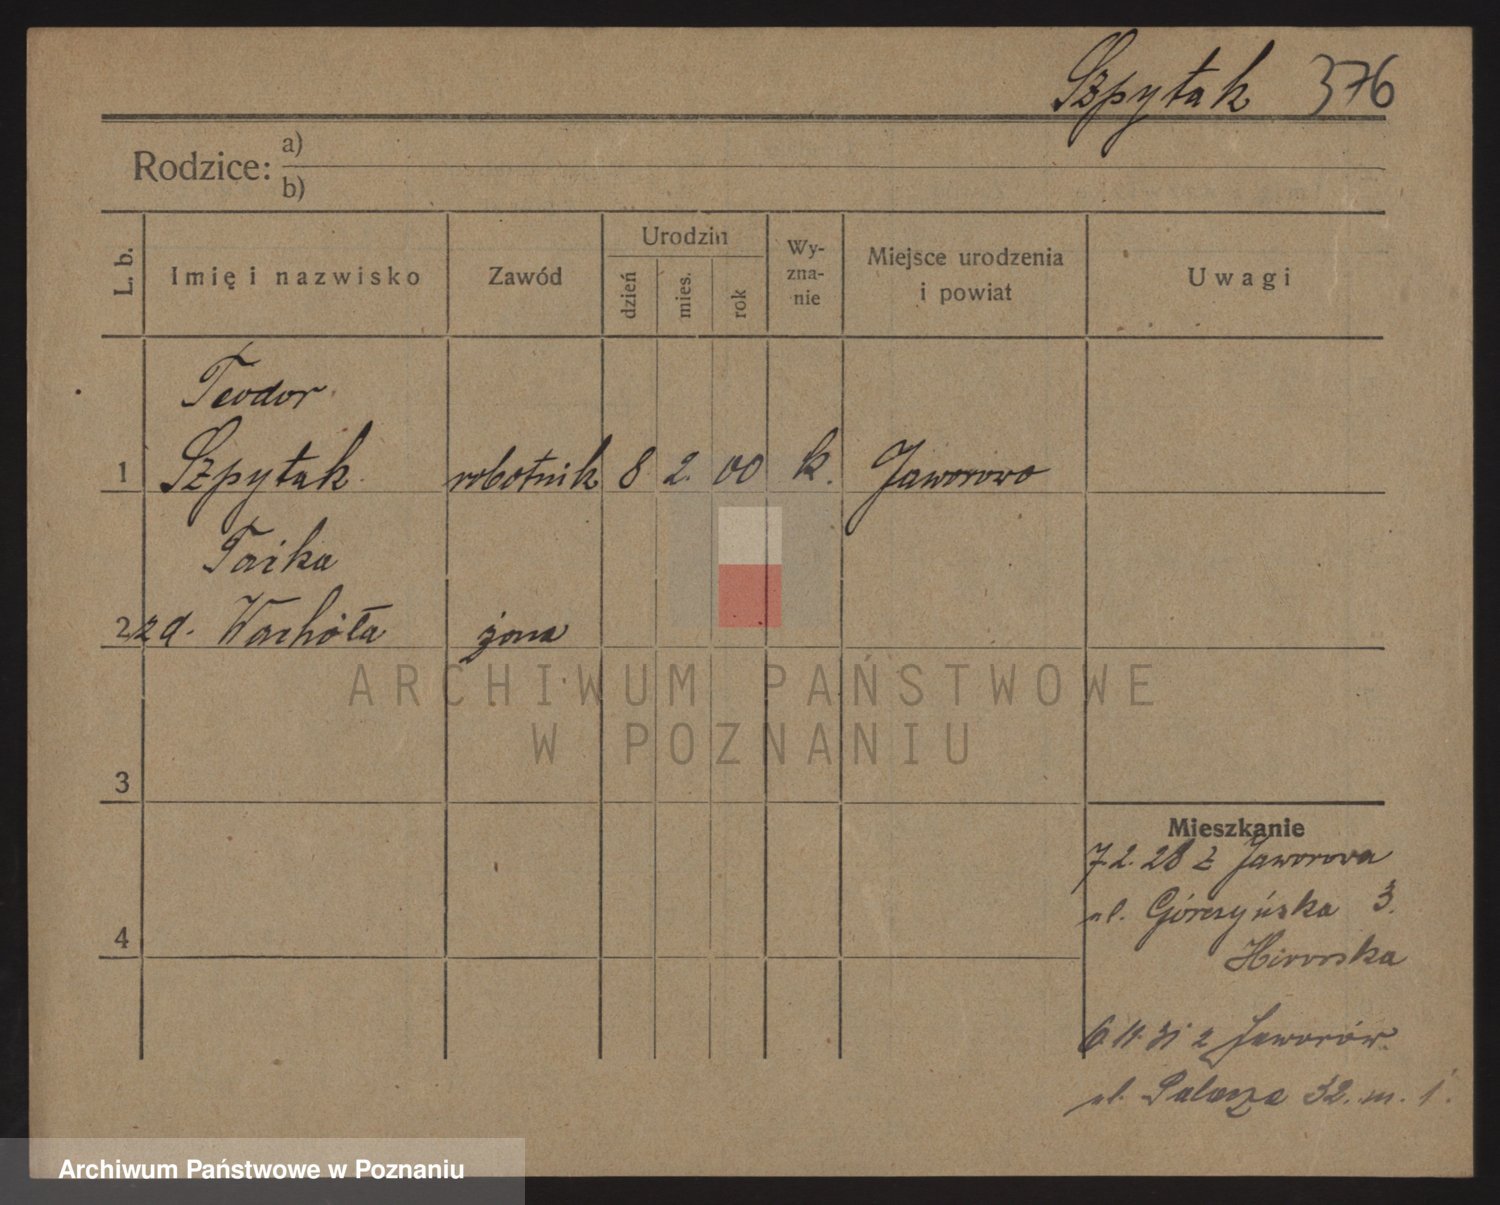 Szpytak 376
Rodzice: a)
b)
L. b.
Imię i nazwisko
Zawód
Urodzin
dzień
mies.
rok
Wy-
zna-
nie
Miejsce urodzenia
i powiat
Uwagi
Teodor
1 Szpytak robotnik 8 2. 00 k. Jaworowo
2 zd. żona
ARCHIWUM PAŃSTWOWE
W POZNANIU
3
Mieszkanie
7.2.28 z Jaworowa
ul. Górczyńska 3.
4
6 11 31 z Jaworów
ul. Palacza 32. m. 1.
Archiwum Państwowe w Poznaniu